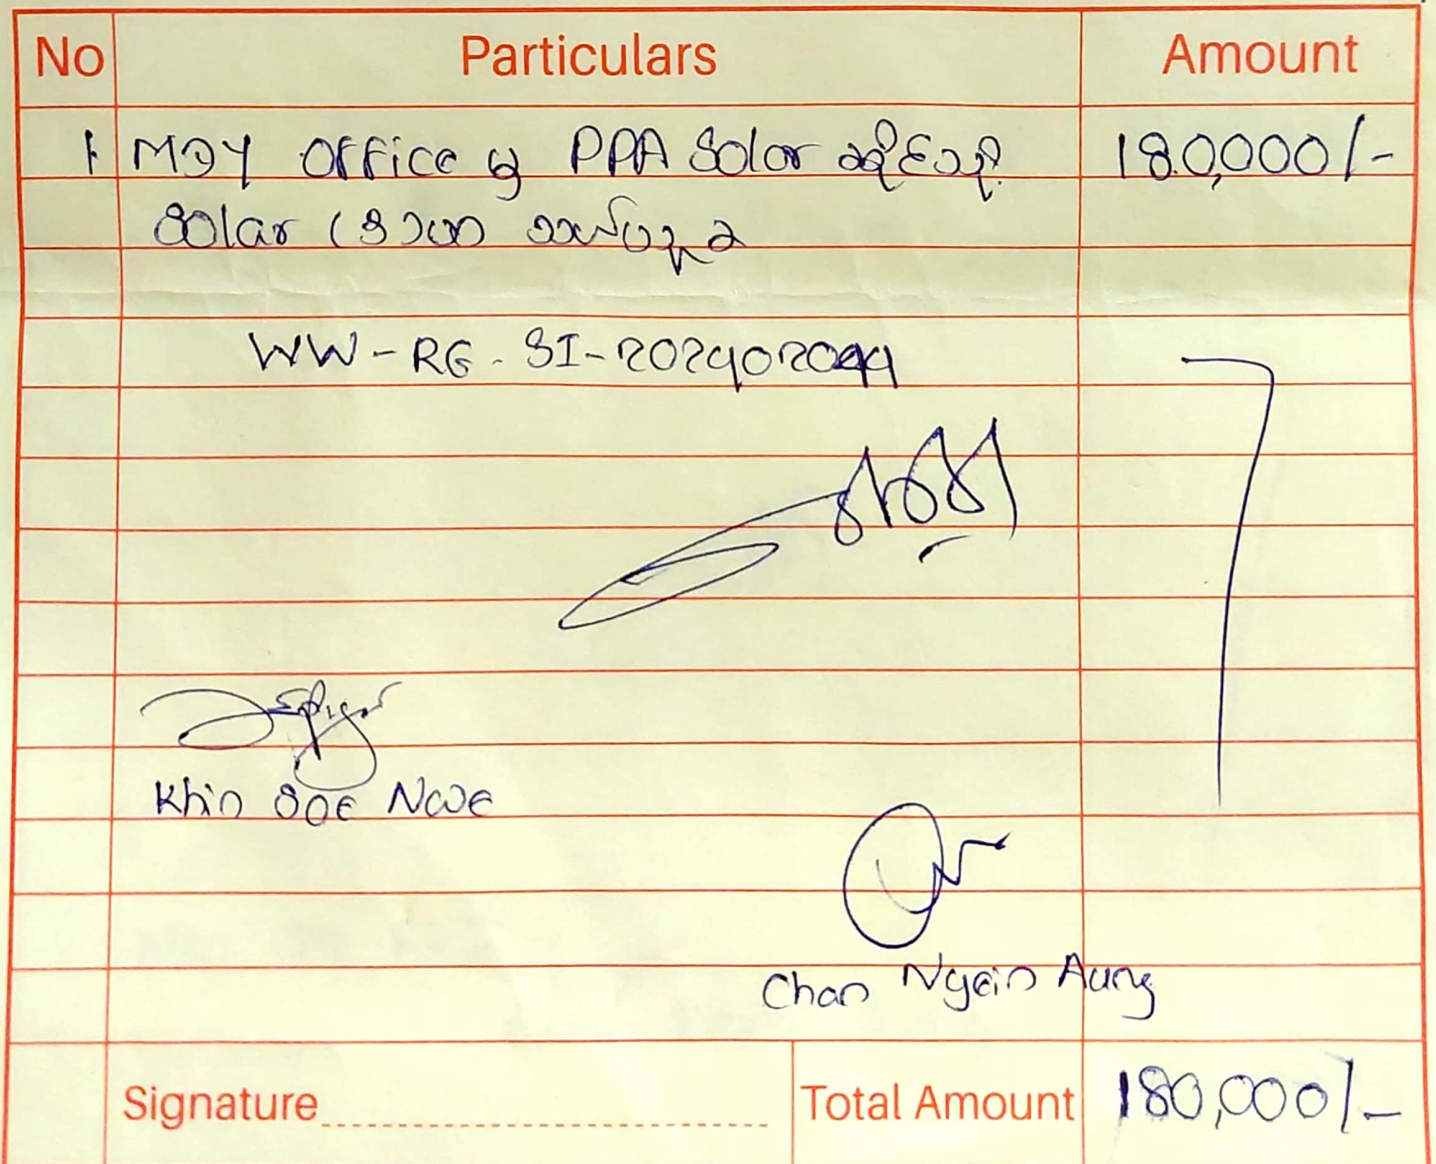 No Particulars Amount
1 MDY Office မှ PPA Solar ဆိုင်သို့ 180,000/-
Solar
WW-RG-SI-202402044
Khin Soe Nwe
Chan Nyein Aung
Signature Total Amount 180,000/-